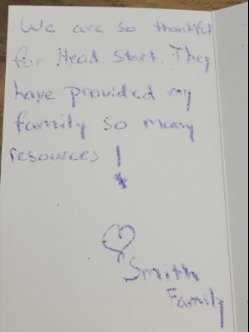 We are so thankful
for Head Start. They
have provided my
family so many
resources!
Smith
Family